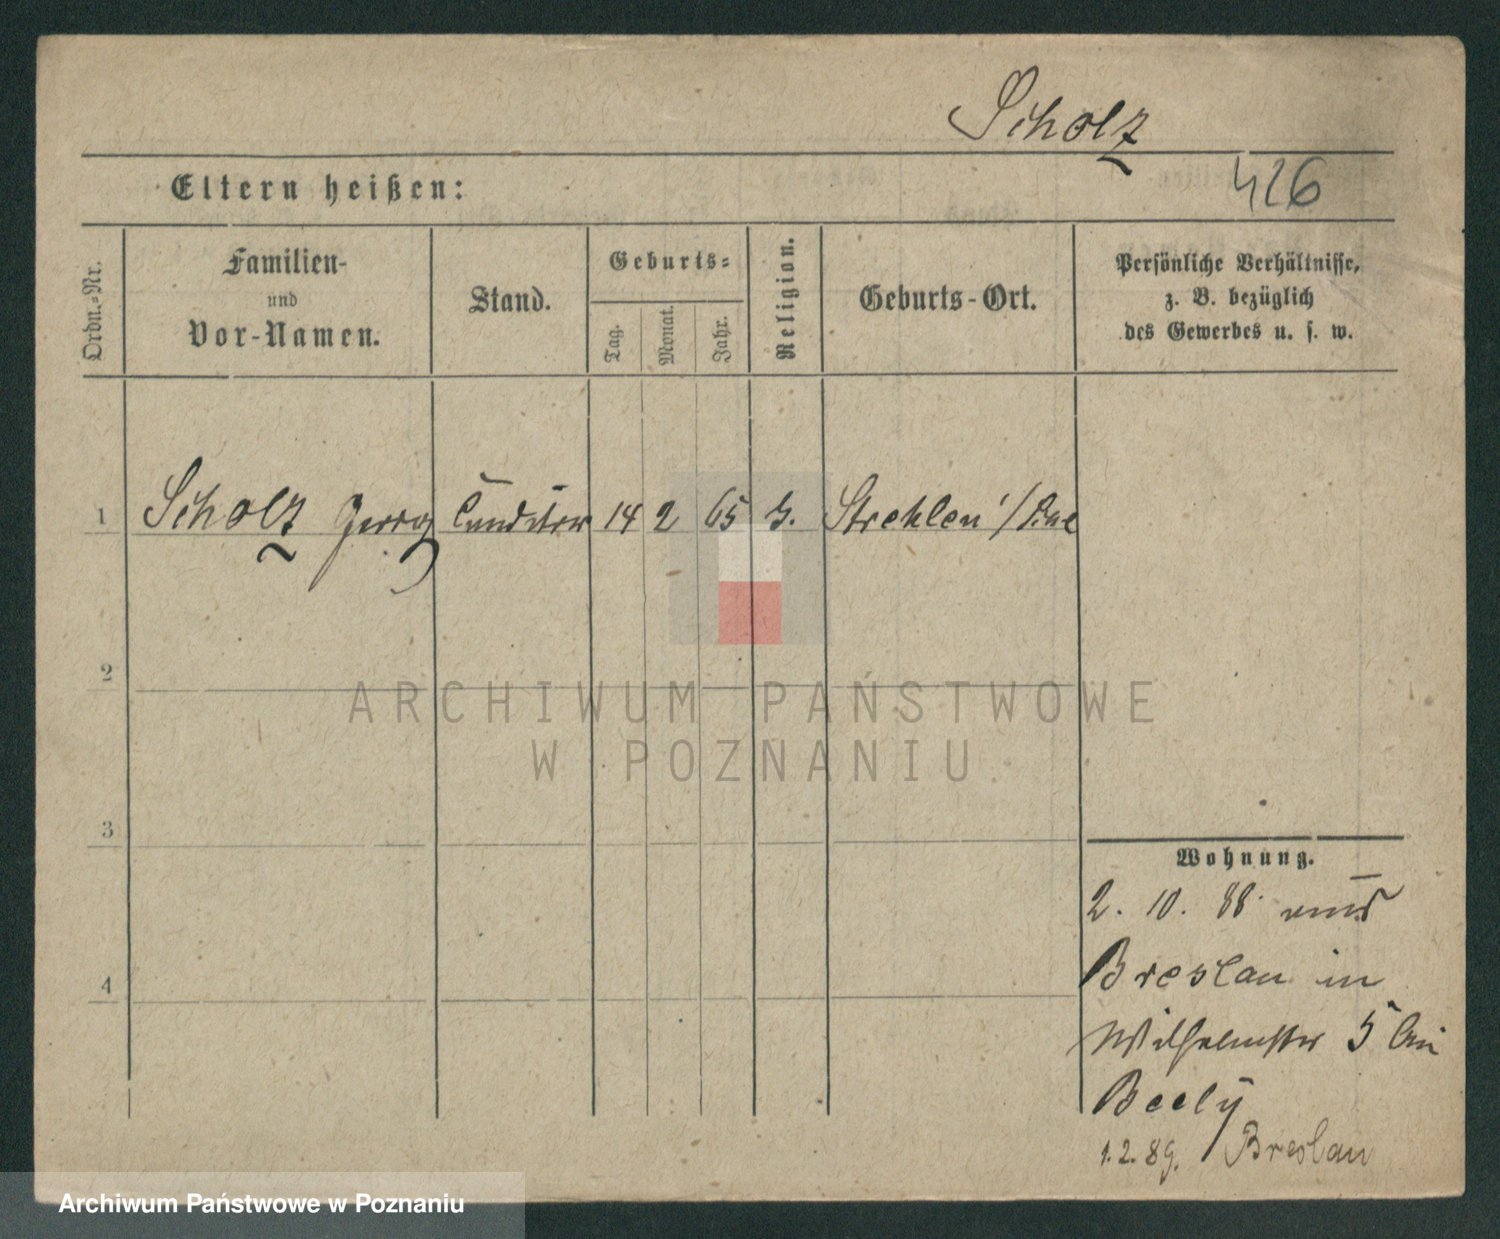 Scholz
Eltern heißen:
426
Ordn.-Nr.
Familien-
und
Vor-Namen.
Stand.
Geburts-
Tag.
Monat.
Jahr.
Religion.
Geburts-Ort.
Persönliche Verhältnisse,
z. B. bezüglich
des Gewerbes u. s. w.
1 Scholz Georg Conditor 14 2 65 Strehlen
2
3
4
ARCHIWUM PAŃSTWOWE
W POZNANIU
Wohnung.
2. 10. 88. aus
Breslau in
Wilhelmstr 5 bei
Beely
1.2.89. Breslau
Archiwum Państwowe w Poznaniu